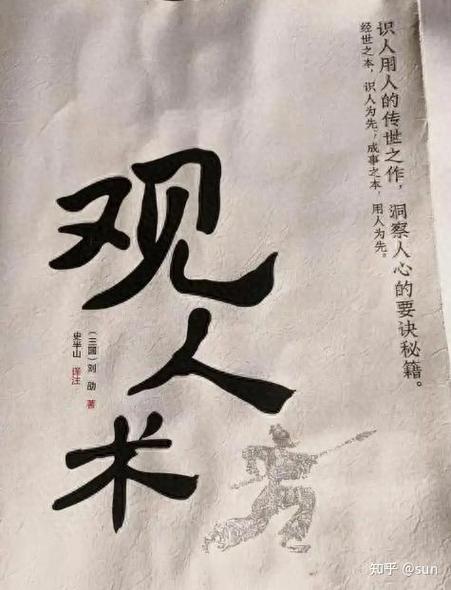 识人用人的传世之作，洞察人心的要诀秘籍。
经世之本，识人为先；成事之本，用人为先。
观人术
（三國）刘劭 著
史半山 译注
知乎 @sun